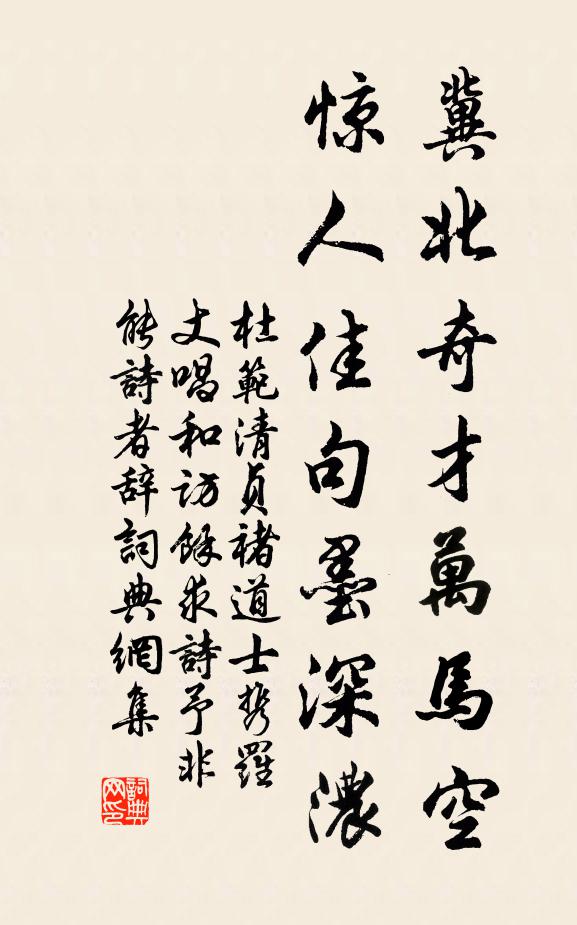 冀北奇才萬馬空
惊人佳句墨深濃
杜範清貞褚道士携羅
丈唱和訪餘求詩予非
能詩者辞詞典網集
詞典網印